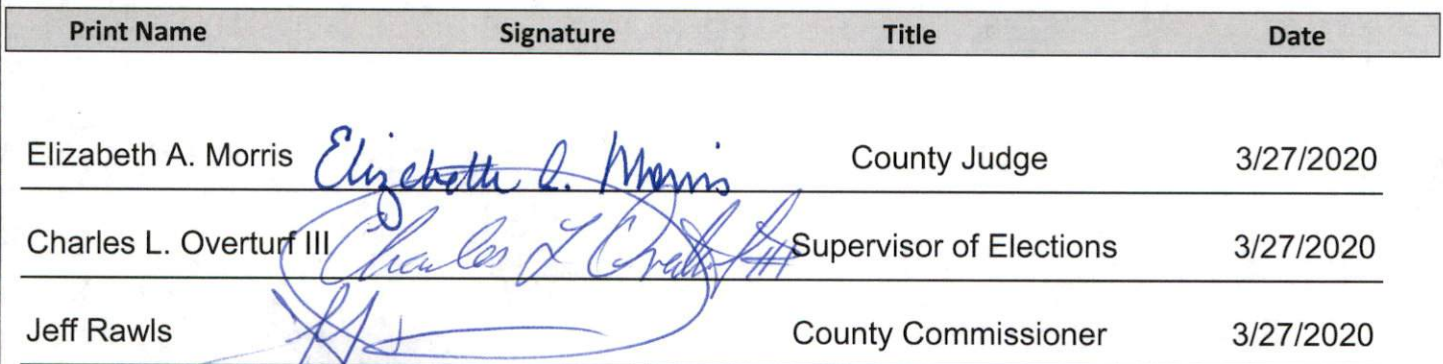 Print Name Signature Title Date
Elizabeth A. Morris Elizabeth A. Morris County Judge 3/27/2020
Charles L. Overturf III Charles L Overturf III Supervisor of Elections 3/27/2020
Jeff Rawls County Commissioner 3/27/2020